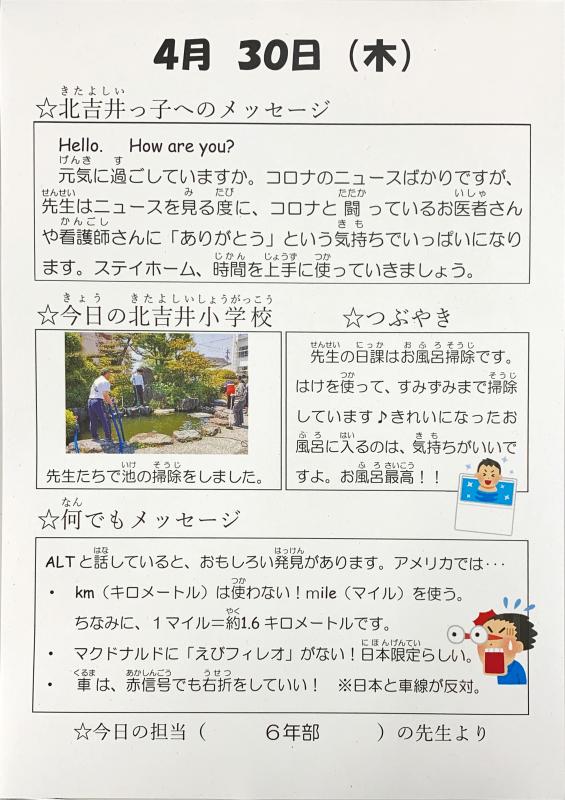 4月 30日（木）
☆北吉井っ子へのメッセージ
Hello. How are you?
元気に過ごしていますか。コロナのニュースばかりですが、
先生はニュースを見る度に、コロナと闘っているお医者さん
や看護師さんに「ありがとう」という気持ちでいっぱいになり
ます。ステイホーム、時間を上手に使っていきましょう。
☆今日の北吉井小学校
先生たちで池の掃除をしました。
☆つぶやき
先生の日課はお風呂掃除です。
はけを使って、すみずみまで掃除
しています♪きれいになったお
風呂に入るのは、気持ちがいいで
すよ。お風呂最高！！
☆何でもメッセージ
ALTと話していると、おもしろい発見があります。アメリカでは･･･
・ km（キロメートル）は使わない！mile（マイル）を使う。
ちなみに、１マイル＝約1.6 キロメートルです。
・ マクドナルドに「えびフィレオ」がない！日本限定らしい。
・ 車は、赤信号でも右折をしていい！ ※日本と車線が反対。
☆今日の担当（ ６年部 ）の先生より